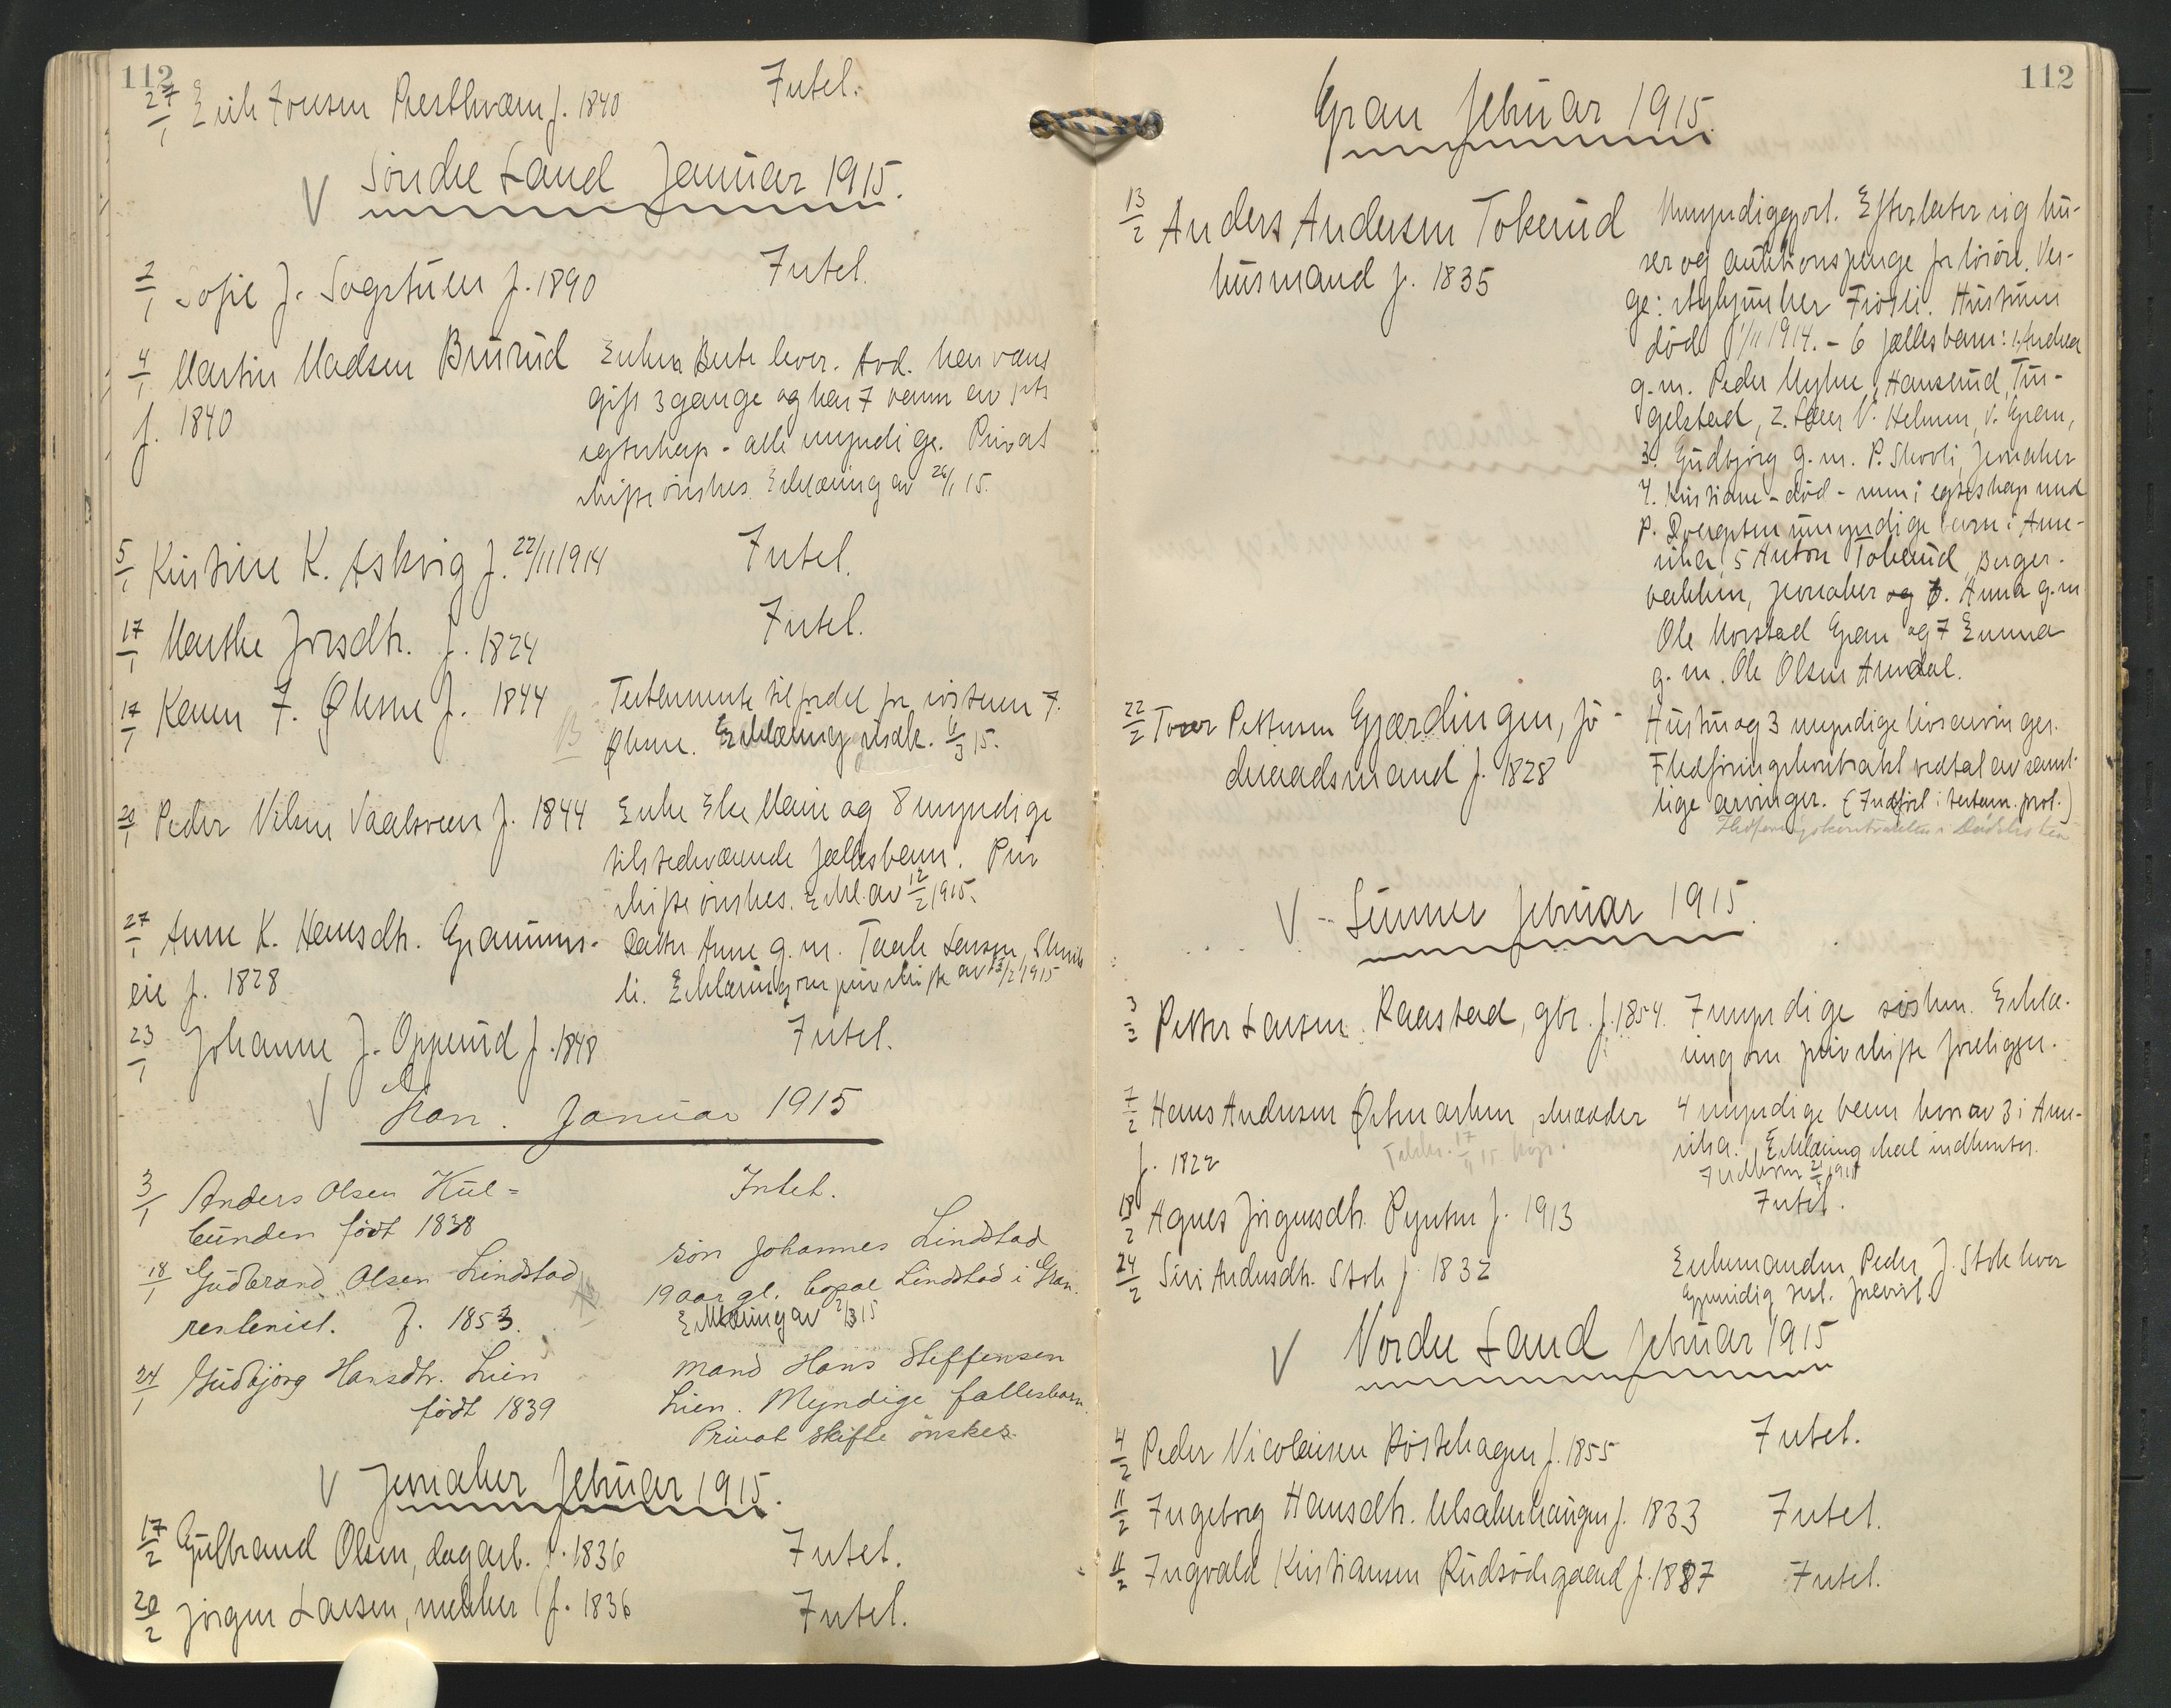 112
27/1 Erik Jonsen Præsthværn f. 1840 Intet.
Søndre Land Januar 1915.
2/1 Sofie J. Sogstuen f. 1890 Intet.
4/1 Martin Madsen Brurud
f. 1840
Enken Berte lever. Avd. har været
gift 3 gange og har 7 barn av
egteskap - alle myndige. Privat
skifte ønskes. Erklæring av 26/1 15.
5/1 Kristine K. Askvig f. 22/11 1914 Intet.
17/1 Marthe Jonsdtr. f. 1824 Intet.
17/1 Karen F. Øksne f. 1844
Testamente til fordel for søsteren F.
Øksne. Erklæring vedk. 6/3 15.
20/1 Peder Nilsen Vaalsveen f. 1844
Enke Else Marie og 8 myndige
tilstedværende fællesbarn. Priv
skifte ønskes. Erkl. av 12/2 1915.
27/1 Anne K. Hansdtr. Granums-
eie f. 1828
Datter Anne g. m. Larsen,
li. Erklæring om priv skifte av 13/2 1915
23/1 Johanne J. Opperud f. 1848 Intet.
Gran. Januar 1915
3/1 Anders Olsen Hul=
bunden født 1838
Intet.
18/1 Gudbrand Olsen Lindstad
rentenist. f. 1853.
søn Johannes Lindstad
19 aar gl. bopæl Lindstad i Gran.
Erklæring av 2/3 15
24/1 Gudbjørg Hansdtr. Lien
født 1839
Mand Hans Steffensen
Lien. Myndige fællesbarn.
Privat skifte ønskes.
Jevnaker Februar 1915.
17/2 Gulbrand Olsen, dagarb. f. 1836 Intet.
20/2 Jørgen Larsen, f. 1836 Intet.
112
Gran Februar 1915.
13/2 Anders Andersen Tokerud
husmand f. 1835
Umyndiggjort. Efterlater sig hu-
ser og auktionspenge for løsøre. Ver-
ge: Hustruen
død 1/11 1914. - 6 fællesbarn: 1, Andrea
g. m. Peder Myhre, Hanserud, Tin-
gelstad, 2. V. Helmen, V. Gran,
3. Gudbjørg g. m. P. Skovli, Jevnaker
4. Kristiane - død - var i egteskap med
P. umyndige barn i Ame-
rika, 5 Anton Tokerud, Berger-
bakken, Jevnaker og 6. Anna g. m
Ole Morstad Gran og 7 Emma
g. m. Ole Olsen
22/2 Tover Pettersen Gjærdingen, fø-
deraadsmand f. 1828
Hustru og 3 myndige livsarvinger.
Fledføringskontrakt vedtat av samt-
lige arvinger. (Indført i testam. prot.)
Fledføringskontrakten i Dødslisten
Lunner Februar 1915.
3/2 Petter Larsen Raastad, gbr. f. 1854.
7 myndige søsken. Erklæ-
ring om priv skifte foreligger.
7/2 Hans Andersen Østmarken, skrædder
f. 1822
4 myndige barn hvorav 3 i Ame-
rika. Erklæring skal indhentes.
18/2 Agnes Jørgensdtr. Pynten f. 1913 Intet.
24/2 Siri Andersdtr. Stok f. 1832
Enkemanden Peder J. Stok lever
Nordre Land Februar 1915
4/2 Peder Nicolaisen Røstehagen f. 1855 Intet.
11/2 Ingeborg Hansdtr. Ulsakerhaugen f. 1833 Intet.
11/2 Ingvald Kristiansen Rudsødegaard f. 1887 Intet.